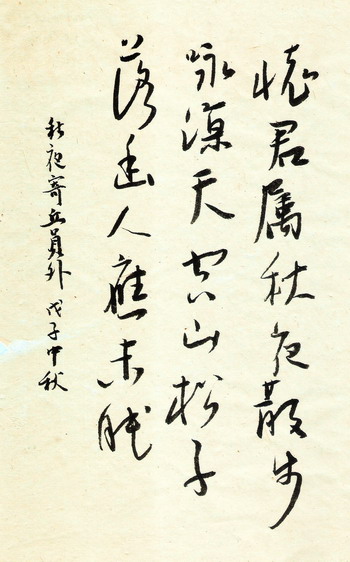 怀君属秋夜散步
咏凉天空山松子
落幽人應未眠
秋夜寄丘員外 戊子中秋